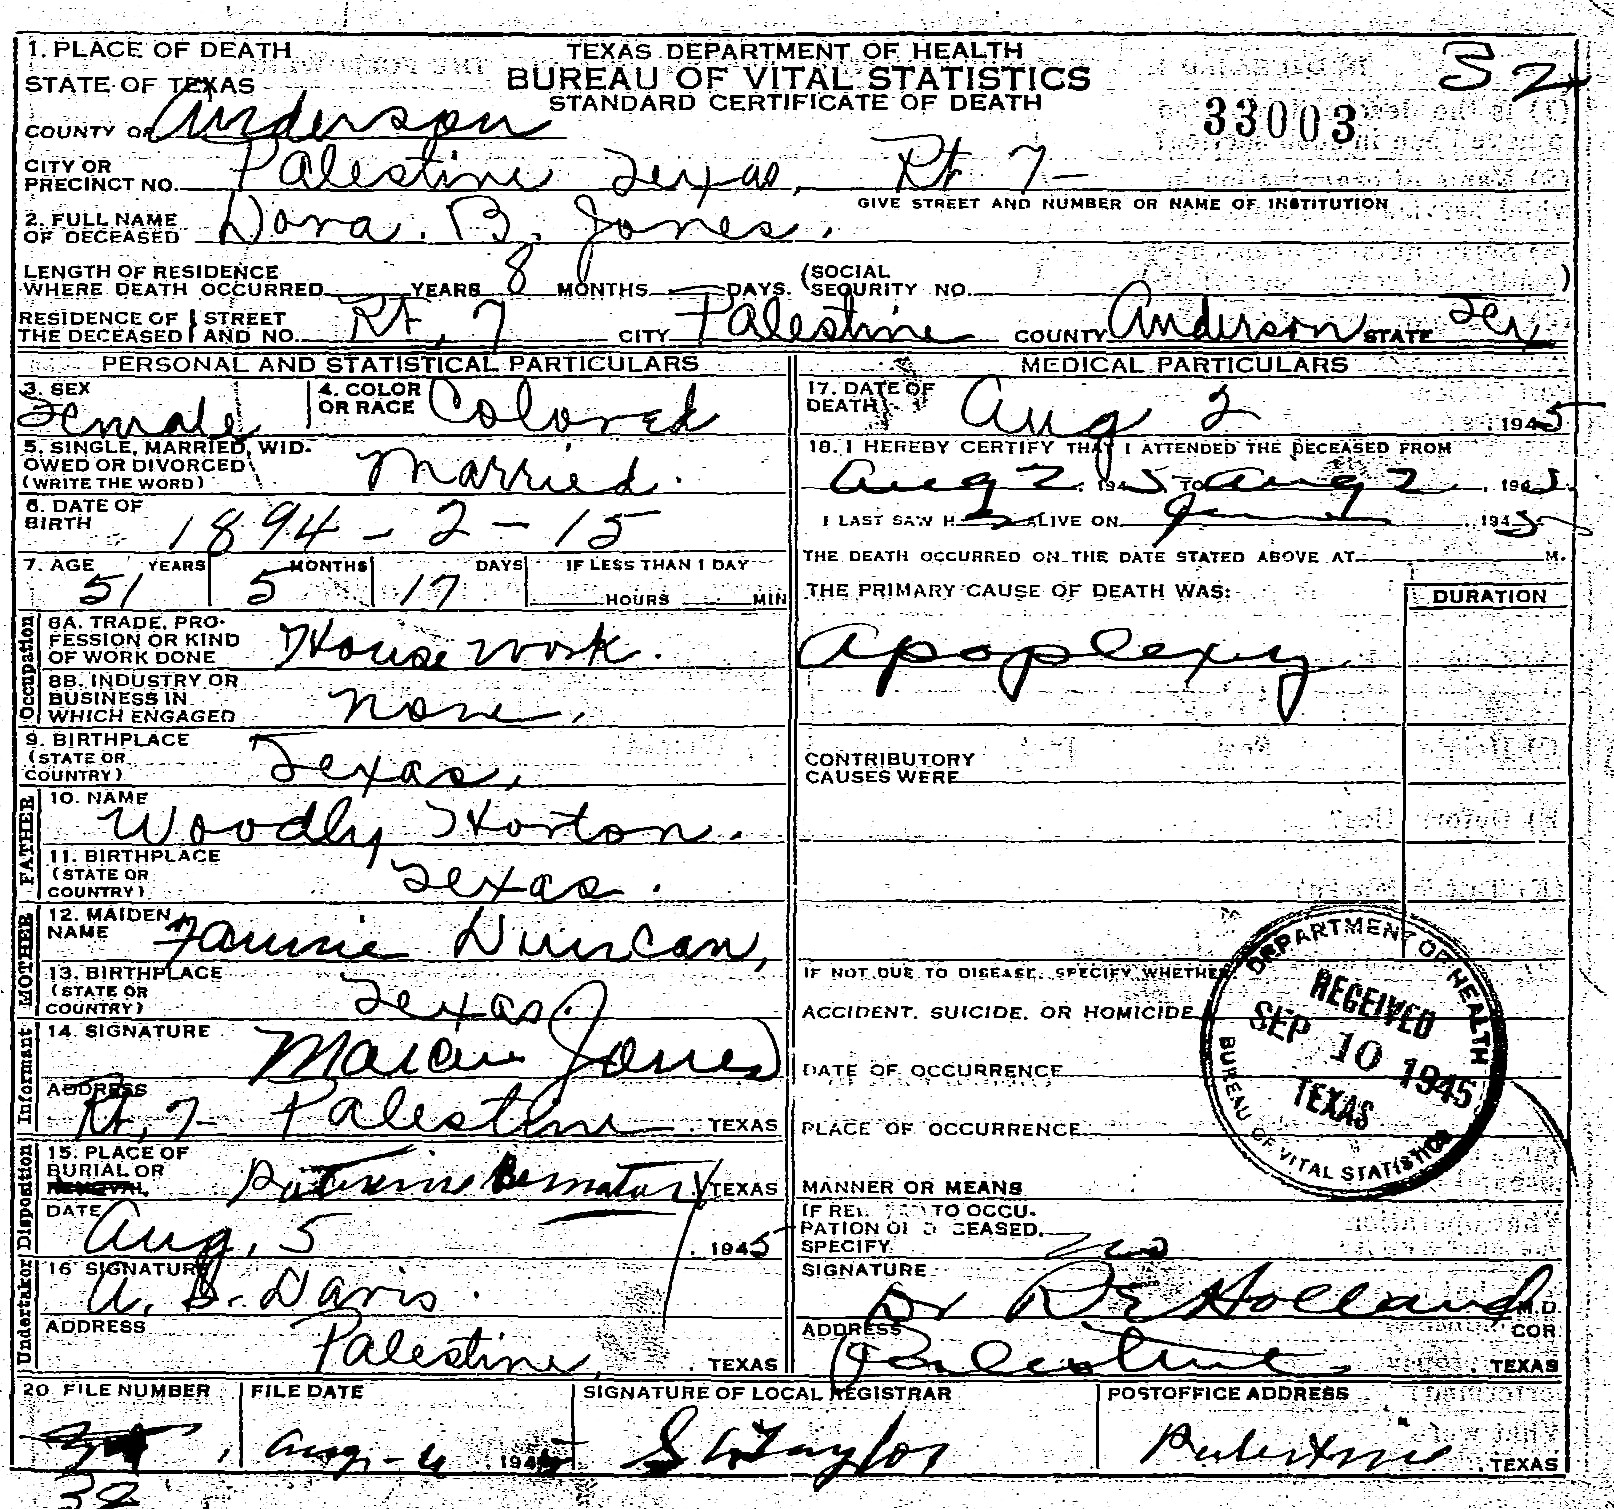 1. PLACE OF DEATH
STATE OF TEXAS
TEXAS DEPARTMENT OF HEALTH
BUREAU OF VITAL STATISTICS
STANDARD CERTIFICATE OF DEATH
52
33003
COUNTY OF Anderson
CITY OR PRECINCT NO. Palestine Texas, Rt 7-
GIVE STREET AND NUMBER OR NAME OF INSTITUTION
2. FULL NAME OF DECEASED Dora. B. Jones.
LENGTH OF RESIDENCE WHERE DEATH OCCURRED YEARS 8 MONTHS DAYS. (SOCIAL SECURITY NO. )
RESIDENCE OF THE DECEASED STREET AND NO. Rt, 7 CITY Palestine COUNTY Anderson STATE Tex
PERSONAL AND STATISTICAL PARTICULARS
3. SEX Female
4. COLOR OR RACE Colored
5. SINGLE, MARRIED, WIDOWED OR DIVORCED (WRITE THE WORD) Married.
6. DATE OF BIRTH 1894 - 2 - 15
7. AGE 51 YEARS 5 MONTHS 17 DAYS IF LESS THAN 1 DAY HOURS MIN
Occupation
8A. TRADE, PROFESSION OR KIND OF WORK DONE House work.
8B. INDUSTRY OR BUSINESS IN WHICH ENGAGED none.
9. BIRTHPLACE (STATE OR COUNTRY) Texas,
FATHER
10. NAME Woodly Horton.
11. BIRTHPLACE (STATE OR COUNTRY) Texas.
MOTHER
12. MAIDEN NAME Fannie Duncan,
13. BIRTHPLACE (STATE OR COUNTRY) Texas.
Informant
14. SIGNATURE Jones
ADDRESS Rt, 7- Palestine. TEXAS
Undertaker Disposition
15. PLACE OF BURIAL OR REMOVAL TEXAS
DATE Aug, 5 1945
16 SIGNATURE A. B. Davis.
ADDRESS Palestine, TEXAS
MEDICAL PARTICULARS
17. DATE OF DEATH Aug 2, 1945
18. I HEREBY CERTIFY THAT I ATTENDED THE DECEASED FROM
Aug 2, 1945 TO Aug 2, 1945
I LAST SAW H ALIVE ON 1945
THE DEATH OCCURRED ON THE DATE STATED ABOVE AT M.
THE PRIMARY CAUSE OF DEATH WAS: DURATION
Apoplexy
CONTRIBUTORY CAUSES WERE
IF NOT DUE TO DISEASE, SPECIFY WHETHER
ACCIDENT, SUICIDE, OR HOMICIDE
DATE OF OCCURRENCE
PLACE OF OCCURRENCE
MANNER OR MEANS
IF REL TO OCCUPATION OF DECEASED, SPECIFY no
SIGNATURE Dr R E Holland M.D. COR
ADDRESS Palestine. TEXAS
DEPARTMENT OF HEALTH
RECEIVED
SEP 10 1945
TEXAS
BUREAU OF VITAL STATISTICS
20 FILE NUMBER
FILE DATE Aug - 6 1945
SIGNATURE OF LOCAL REGISTRAR Taylor
POSTOFFICE ADDRESS Palestine TEXAS